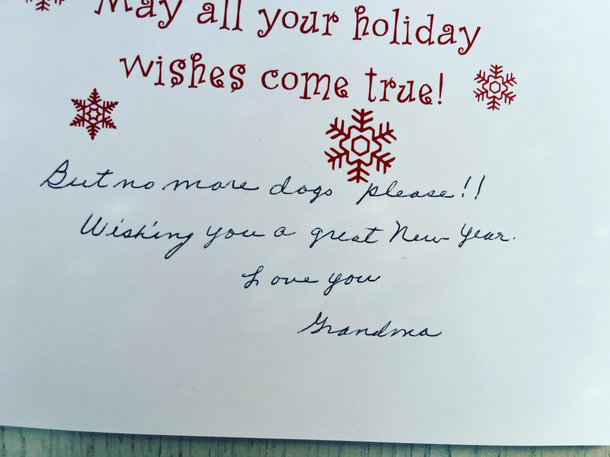 May all your holiday
wishes come true!
But no more dogs please!!
Wishing you a great New Year.
Love you
Grandma